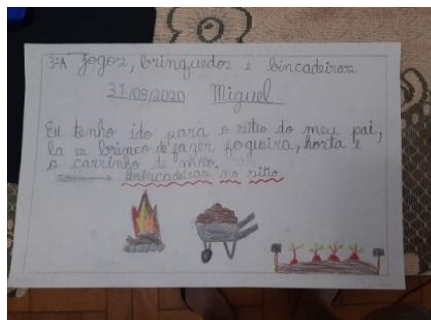 3ºA Jogos, brinquedos e bincadeiras
31/08/2020 Miguel
Eu tenho ido para o sitio do meu pai,
la eu brinco de fazer fogueira, horta e
o carrinho de
brincadeiras no sitio